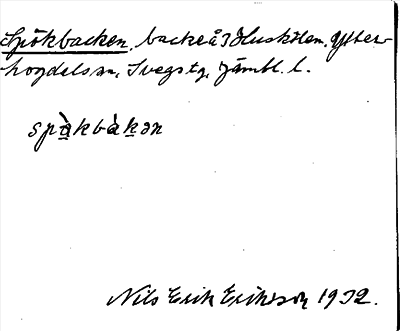 Spökbacken, backe å 3 Huskölen. Ytter-
hogdals sn, Svegs tg, Jämtl. l.
spạ̀kbàkən
Nils Erik Eriksson 1932.